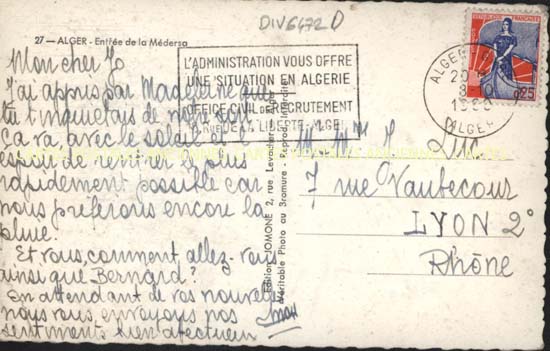 DIV6472D
27 - ALGER - Entrée de la Médersa
L'ADMINISTRATION VOUS OFFRE
UNE SITUATION EN ALGERIE
OFFICE CIVIL DE RECRUTEMENT
RUE DE LA LIBERTE - ALGER
ALGER
ALGER
REPUBLIQUE FRANÇAISE
0,25
Mon cher Jo
J'ai appris par Madeleine que
tu t'inquietais de notre sort
ça va avec le soleil
espoir de revenir le plus
rapidement possible car
nous préférons encore la
pluie.
Et vous, comment allez-vous
ainsi que Bernard?
En attendant de vos nouvelles
nous vous envoyons nos
sentiments bien affectueux
Editions JOMONE 2, rue Levacher - Alger
Véritable Photo au Bromure - Reprod. Interdite
Luc
7 rue Vaubecour
LYON 2°
Rhône